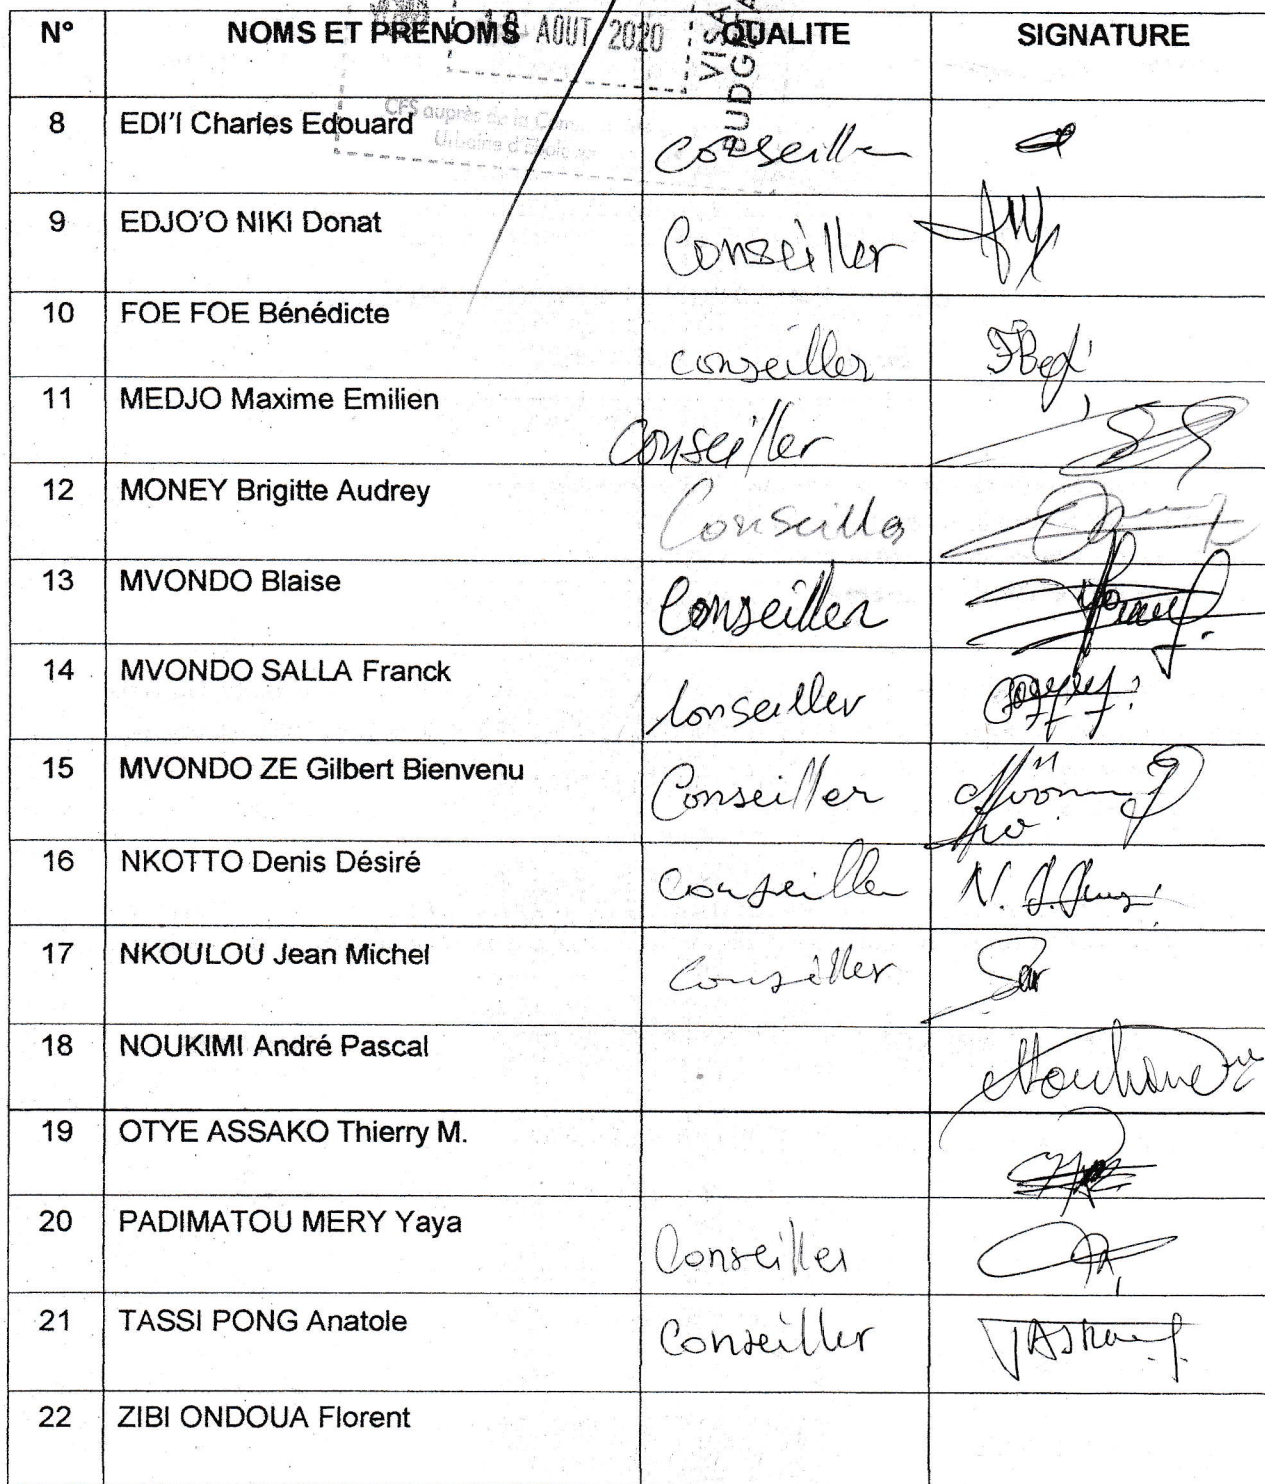 AOUT 2020
VISA
N° NOMS ET PRENOMS QUALITE SIGNATURE
CFS auprès de la
8 EDI'I Charles Edouard Conseiller
9 EDJO'O NIKI Donat Conseiller
10 FOE FOE Bénédicte conseiller
11 MEDJO Maxime Emilien Conseiller
12 MONEY Brigitte Audrey Conseiller
13 MVONDO Blaise Conseiller
14 MVONDO SALLA Franck Conseiller
15 MVONDO ZE Gilbert Bienvenu Conseiller
16 NKOTTO Denis Désiré Conseiller
17 NKOULOU Jean Michel Conseiller
18 NOUKIMI André Pascal
19 OTYE ASSAKO Thierry M.
20 PADIMATOU MERY Yaya Conseiller
21 TASSI PONG Anatole Conseiller
22 ZIBI ONDOUA Florent